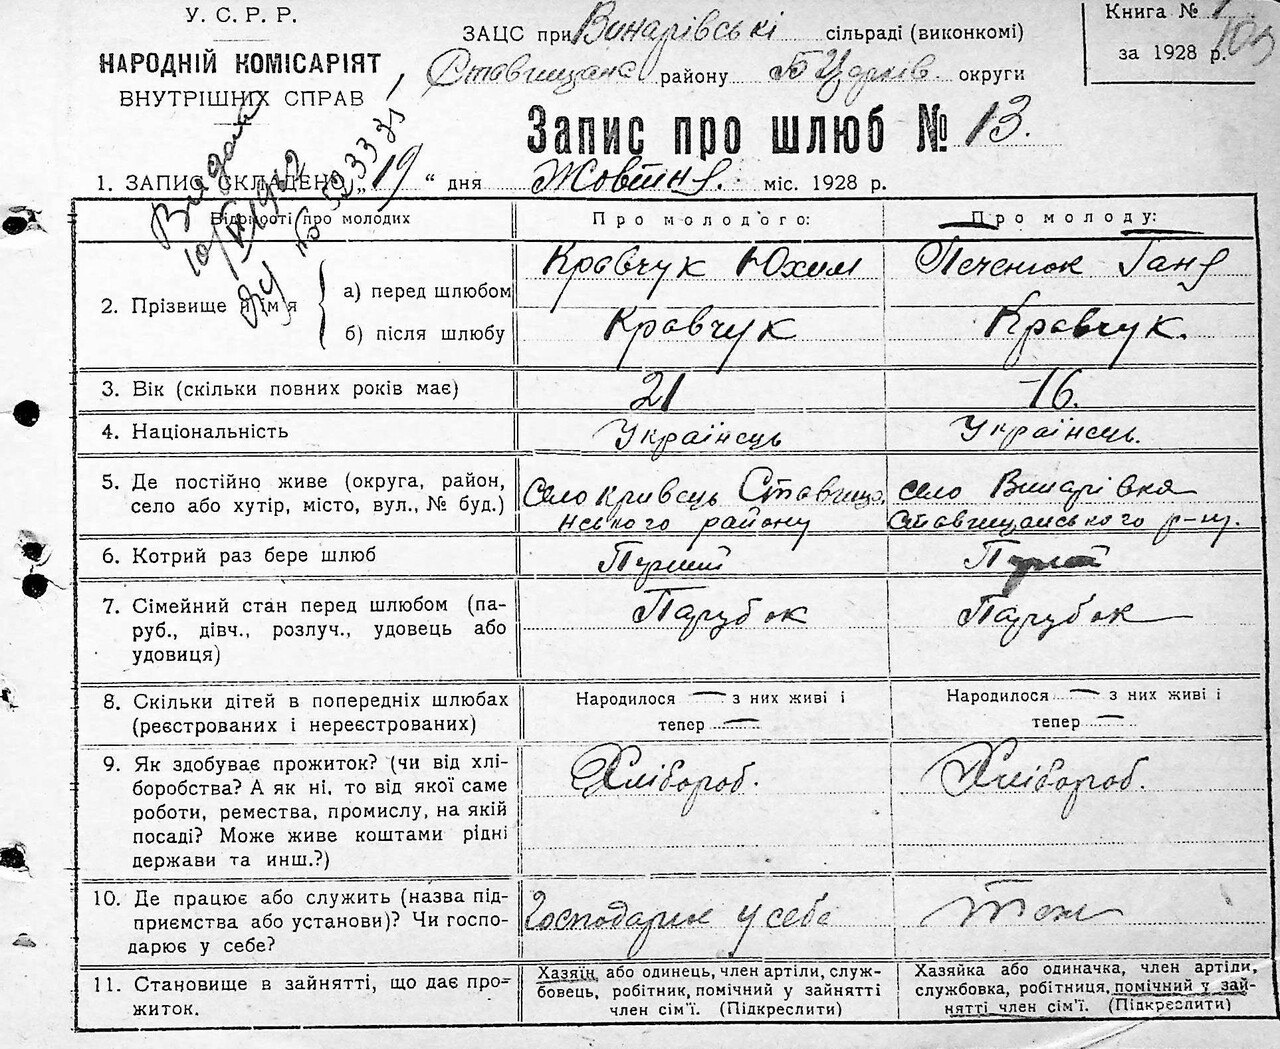 У. С. Р. Р.
НАРОДНІЙ КОМІСАРІЯТ
ВНУТРІШНІХ СПРАВ
ЗАЦС при Винарівські сільраді (виконкомі)
Ставищане району Б Церків округи
Книга №
за 1928 р.
103
Запис про шлюб № 13.
1. ЗАПИС СКЛАДЕНО „19“ дня Жовтня. міс. 1928 р.
Відомості про молодих
Про молодого:
Про молоду:
2. Прізвище й ім'я
а) перед шлюбом
Кравчук Юхим
Печенюк Ганя
б) після шлюбу
Кравчук
Кравчук.
3. Вік (скільки повних років має)
21
16.
4. Національність
Українець
Українець.
5. Де постійно живе (округа, район,
село або хутір, місто, вул., № буд.)
Село Кривець Ставища
нського району
село Винарівка
Ставищанського р-ну.
6. Котрий раз бере шлюб
Перший
7. Сімейний стан перед шлюбом (па-
руб., дівч., розлуч., удовець або
удовиця)
Парубок
Парубок
8. Скільки дітей в попередніх шлюбах
(реєстрованих і нереєстрованих)
Народилося — з них живі і
тепер —
Народилося — з них живі і
тепер —
9. Як здобуває прожиток? (чи від хлі-
боробства? А як ні, то від якої саме
роботи, ремества, промислу, на якій
посаді? Може живе коштами рідні
держави та инш.?)
Хлібороб.
Хлібороб.
10. Де працює або служить (назва під-
приємства або установи)? Чи госпо-
дарює у себе?
Господарює у себе
Тож
11. Становище в зайнятті, що дає про-
житок.
Хазяїн або одинець, член артіли, служ-
бовець, робітник, помічний у зайнятті
член сім'ї. (Підкреслити)
Хазяйка або одиначка, член артіли,
службовка, робітниця, помічний у зай-
нятті член сім'ї. (Підкреслити)